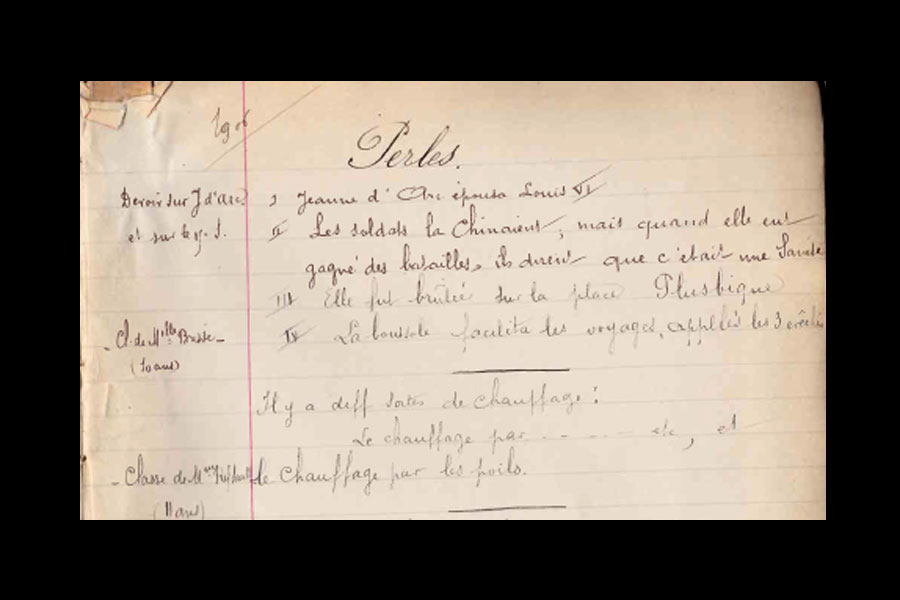 Perles.
Devoir sur J d'Arc
et sur le
I Jeanne d'Arc épousa Louis VI
II Les soldats la Chinaient, mais quand elle eut
gagné des batailles, ils dirent que c'était une Sainte
III Elle fut brûlée sur la place Plusbique
IV La boussole facilita les voyages, appelés les 3
- Cl. de Mlle Basse -
(10 ans)
Il y a diff sortes de chauffage :
Le chauffage par - - - - - - etc, et
- Classe de Mme
le chauffage par les poils.
(11 ans)